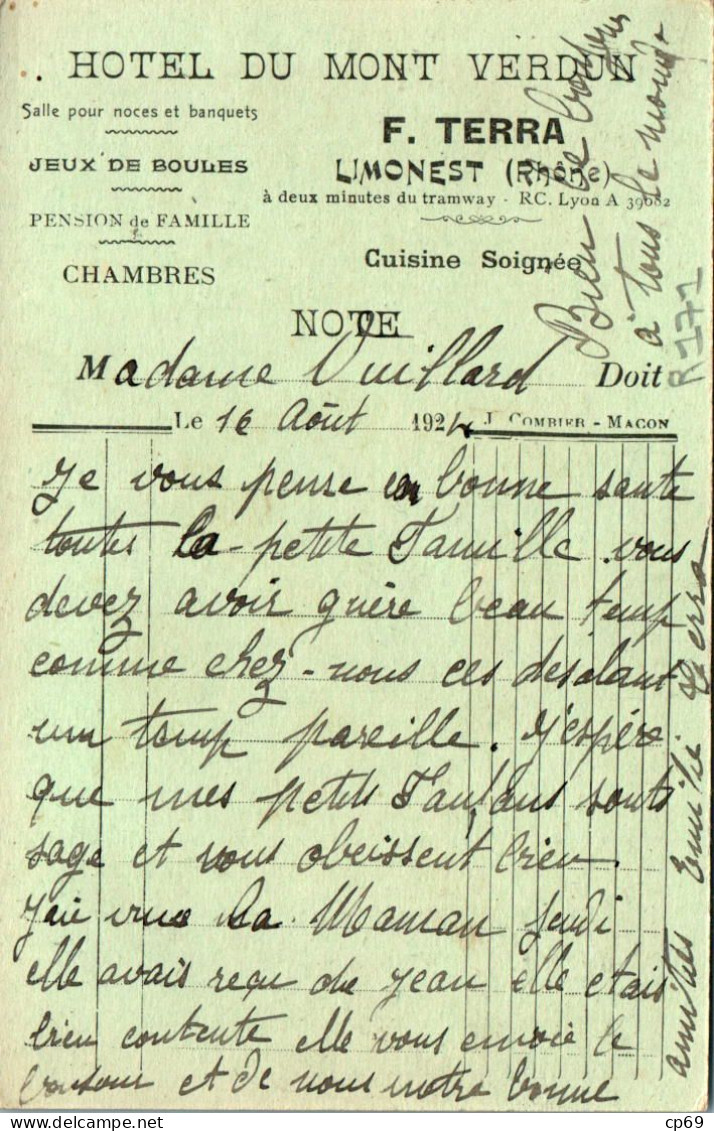 HOTEL DU MONT VERDUN
Salle pour noces et banquets
JEUX DE BOULES
PENSION de FAMILLE
CHAMBRES
F. TERRA
LIMONEST (Rhône)
à deux minutes du tramway - RC. Lyon A 39682
Cuisine Soignée
NOTE
Madame Vuillard Doit
Le 16 Août 1924 J. COMBIER - MACON
Je vous pense en bonne sante
toutes la petite Famille vous
devez avoir guère beau temp
comme chez-nous ces desolant
um temp pareille. J'espére
que mes petits Fanfans sonts
sage et vous obeissent bien.
J'aie vue la Maman Jeudi
elle avais reçu de Jean elle etais
bien contente elle vous envoie le
bonjour et de nous notre bonne
amities Emilie Terra
Bien le bonjour
à tous le monde
R171
cp69